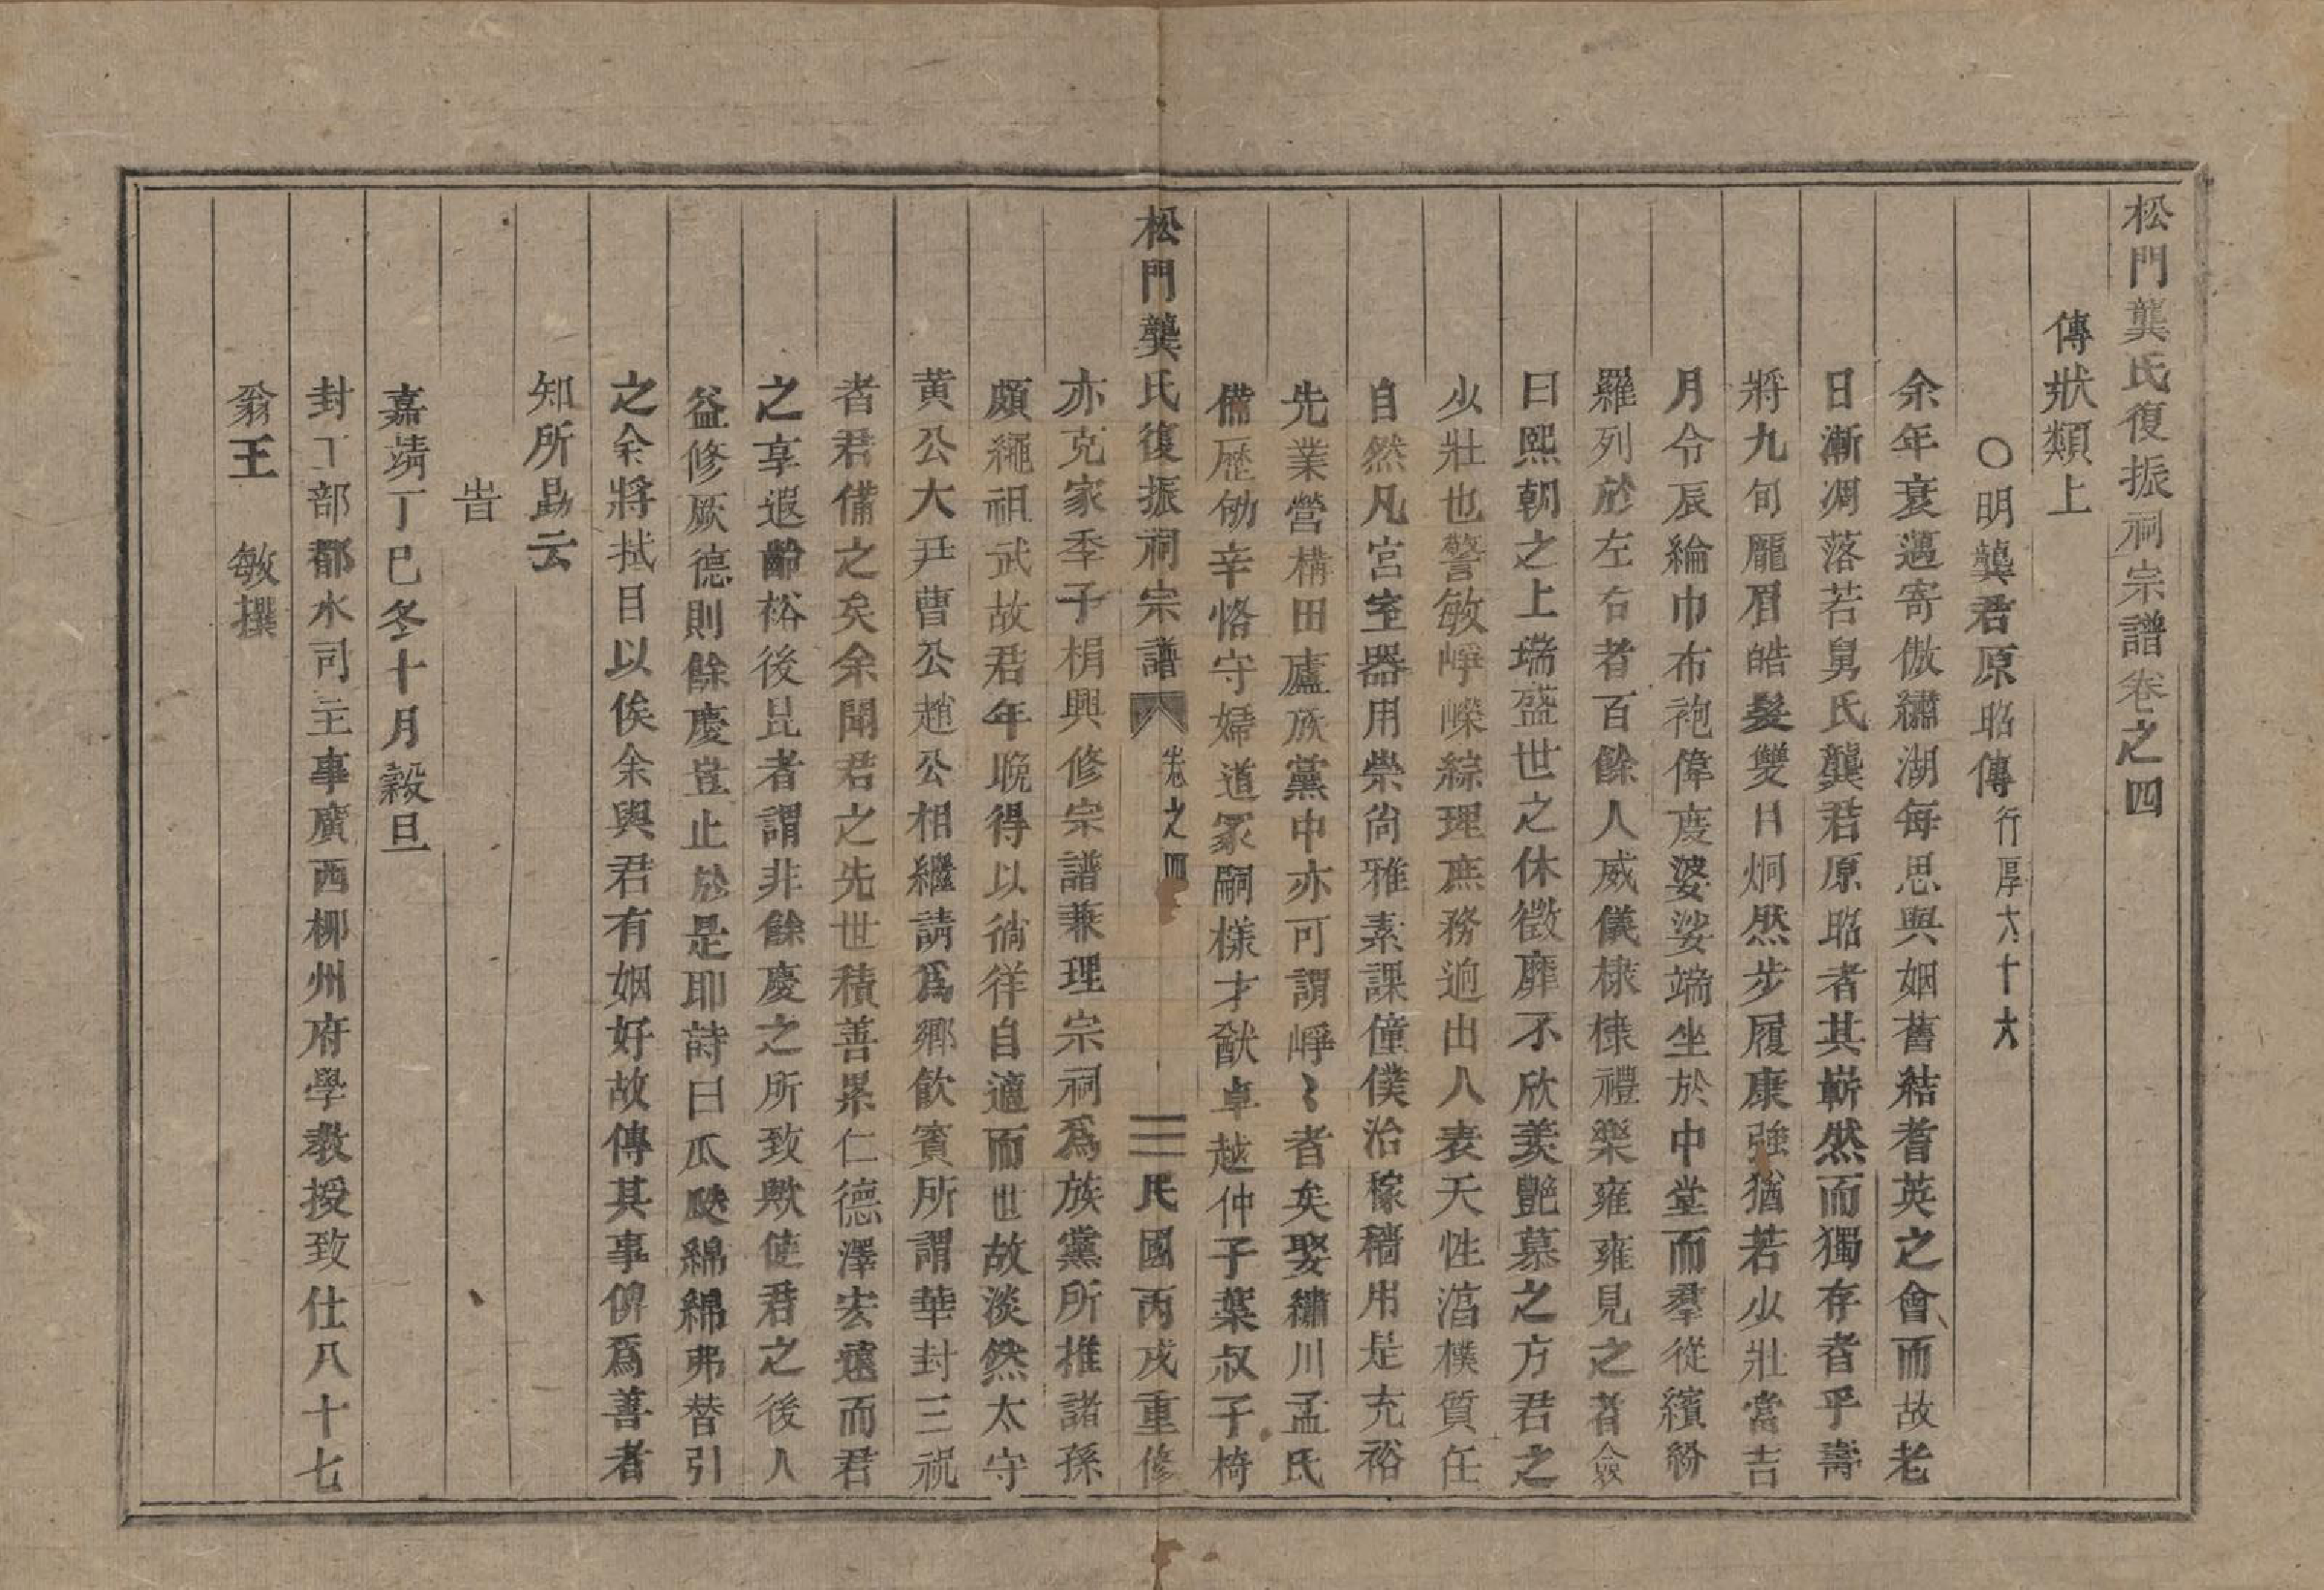 松門龔氏復振祠宗譜卷之四
傳狀類上
〇明龔君原昭傳行厚六十六
余年衰邁寄傲繡湖每思與姻舊結耆英之會而故老
日漸凋落若舅氏龔君原昭者其嶄然而獨存者乎壽
將九旬龐眉皓髮雙目炯然步履康強猶若少壯當吉
月令辰綸巾布袍偉度婆娑端坐於中堂而羣從繽紛
羅列於左右者百餘人威儀棣棣禮樂雍雍見之者僉
曰熙朝之上瑞盛世之休徵靡不欣羨艷慕之方君之
少壯也警敏崢嶸綜理庶務逈出人表天性湻樸質任
自然凡宮室器用崇尚雅素課僮僕治稼穡用是充裕
先業營構田廬族黨中亦可謂崢〻者矣娶繡川孟氏
備歷劬辛恪守婦道冢嗣樣才猷卓越仲子葉叔子椅
松門龔氏復振祠宗譜 卷之四 三 民國丙戌重修
亦克家季子梋興修宗譜兼理宗祠爲族黨所推諸孫
頗繩祖武故君年晚得以徜徉自適而世故淡然太守
黄公大尹曹公趙公相繼請爲鄉飮賓所謂華封三祝
者君備之矣余聞君之先世積善累仁德澤宏遠而君
之享遐齡裕後昆者謂非餘慶之所致歟使君之後人
益修厥德則餘慶豈止於是耶詩曰瓜瓞綿綿弗替引
之余將拭目以俟余與君有姻好故傳其事俾爲善者
知所勗云
旹
嘉靖丁巳冬十月穀旦
封工部都水司主事廣西柳州府學教授致仕八十七
翁王 敏撰